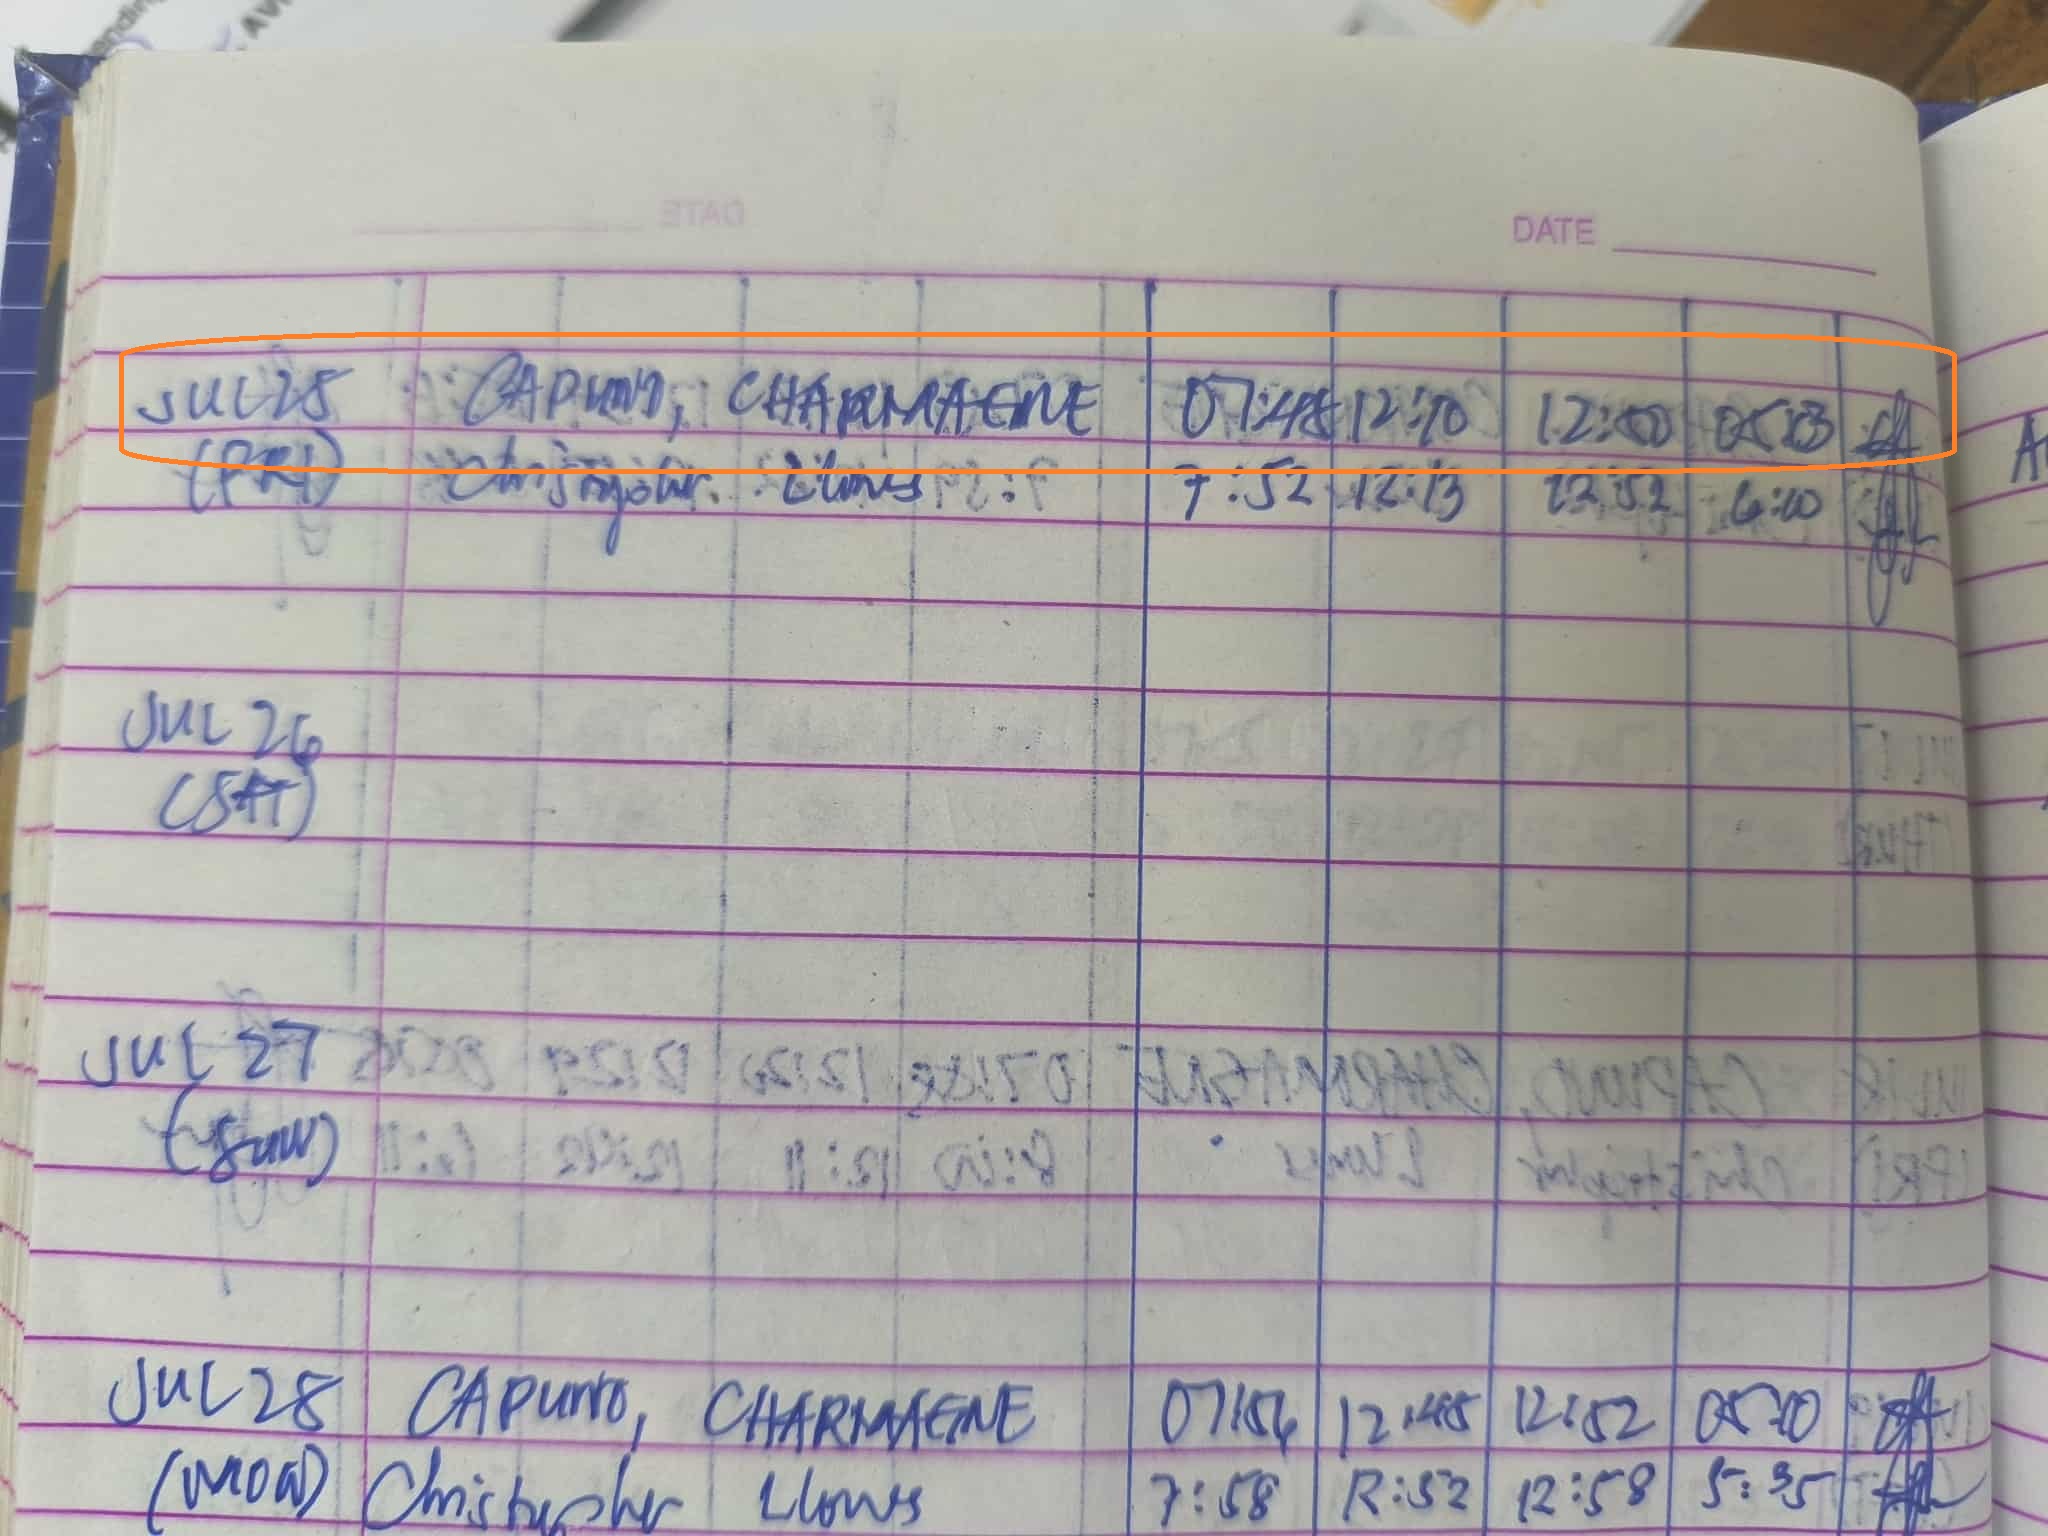 DATE
JUL 25 CAPUNO, CHARMAGNE 07:48 12:10 12:50 05:03
(FRI) Christopher Llones 7:52 12:13 12:52 6:10
JUL 26
(SAT)
JUL 27
(SUN)
JUL 28 CAPUNO, CHARMAGNE 07:56 12:48 12:52 05:10
(MON) Christopher Llones 7:58 12:52 12:58 5:35